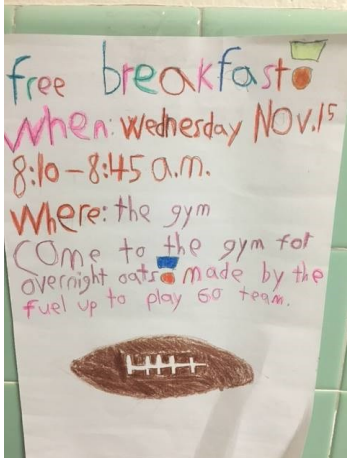 free breakfast!
When: Wednesday Nov. 15
8:10-8:45 a.m.
Where: the gym
Come to the gym for
overnight oats! made by the
fuel up to play 60 team.